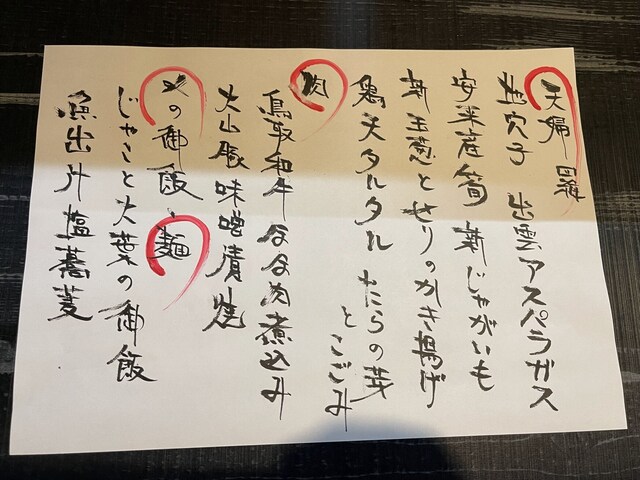 天婦羅
地穴子 出雲アスパラガス
安来産筍 新じゃがいも
新玉葱とせりのかき揚げ
鶏天タルタル たらの芽
とこごみ
肉
鳥取和牛ほほ肉煮込み
大山豚味噌漬焼
〆の御飯、麺
じゃこと大葉の御飯
魚出汁塩蕎麦